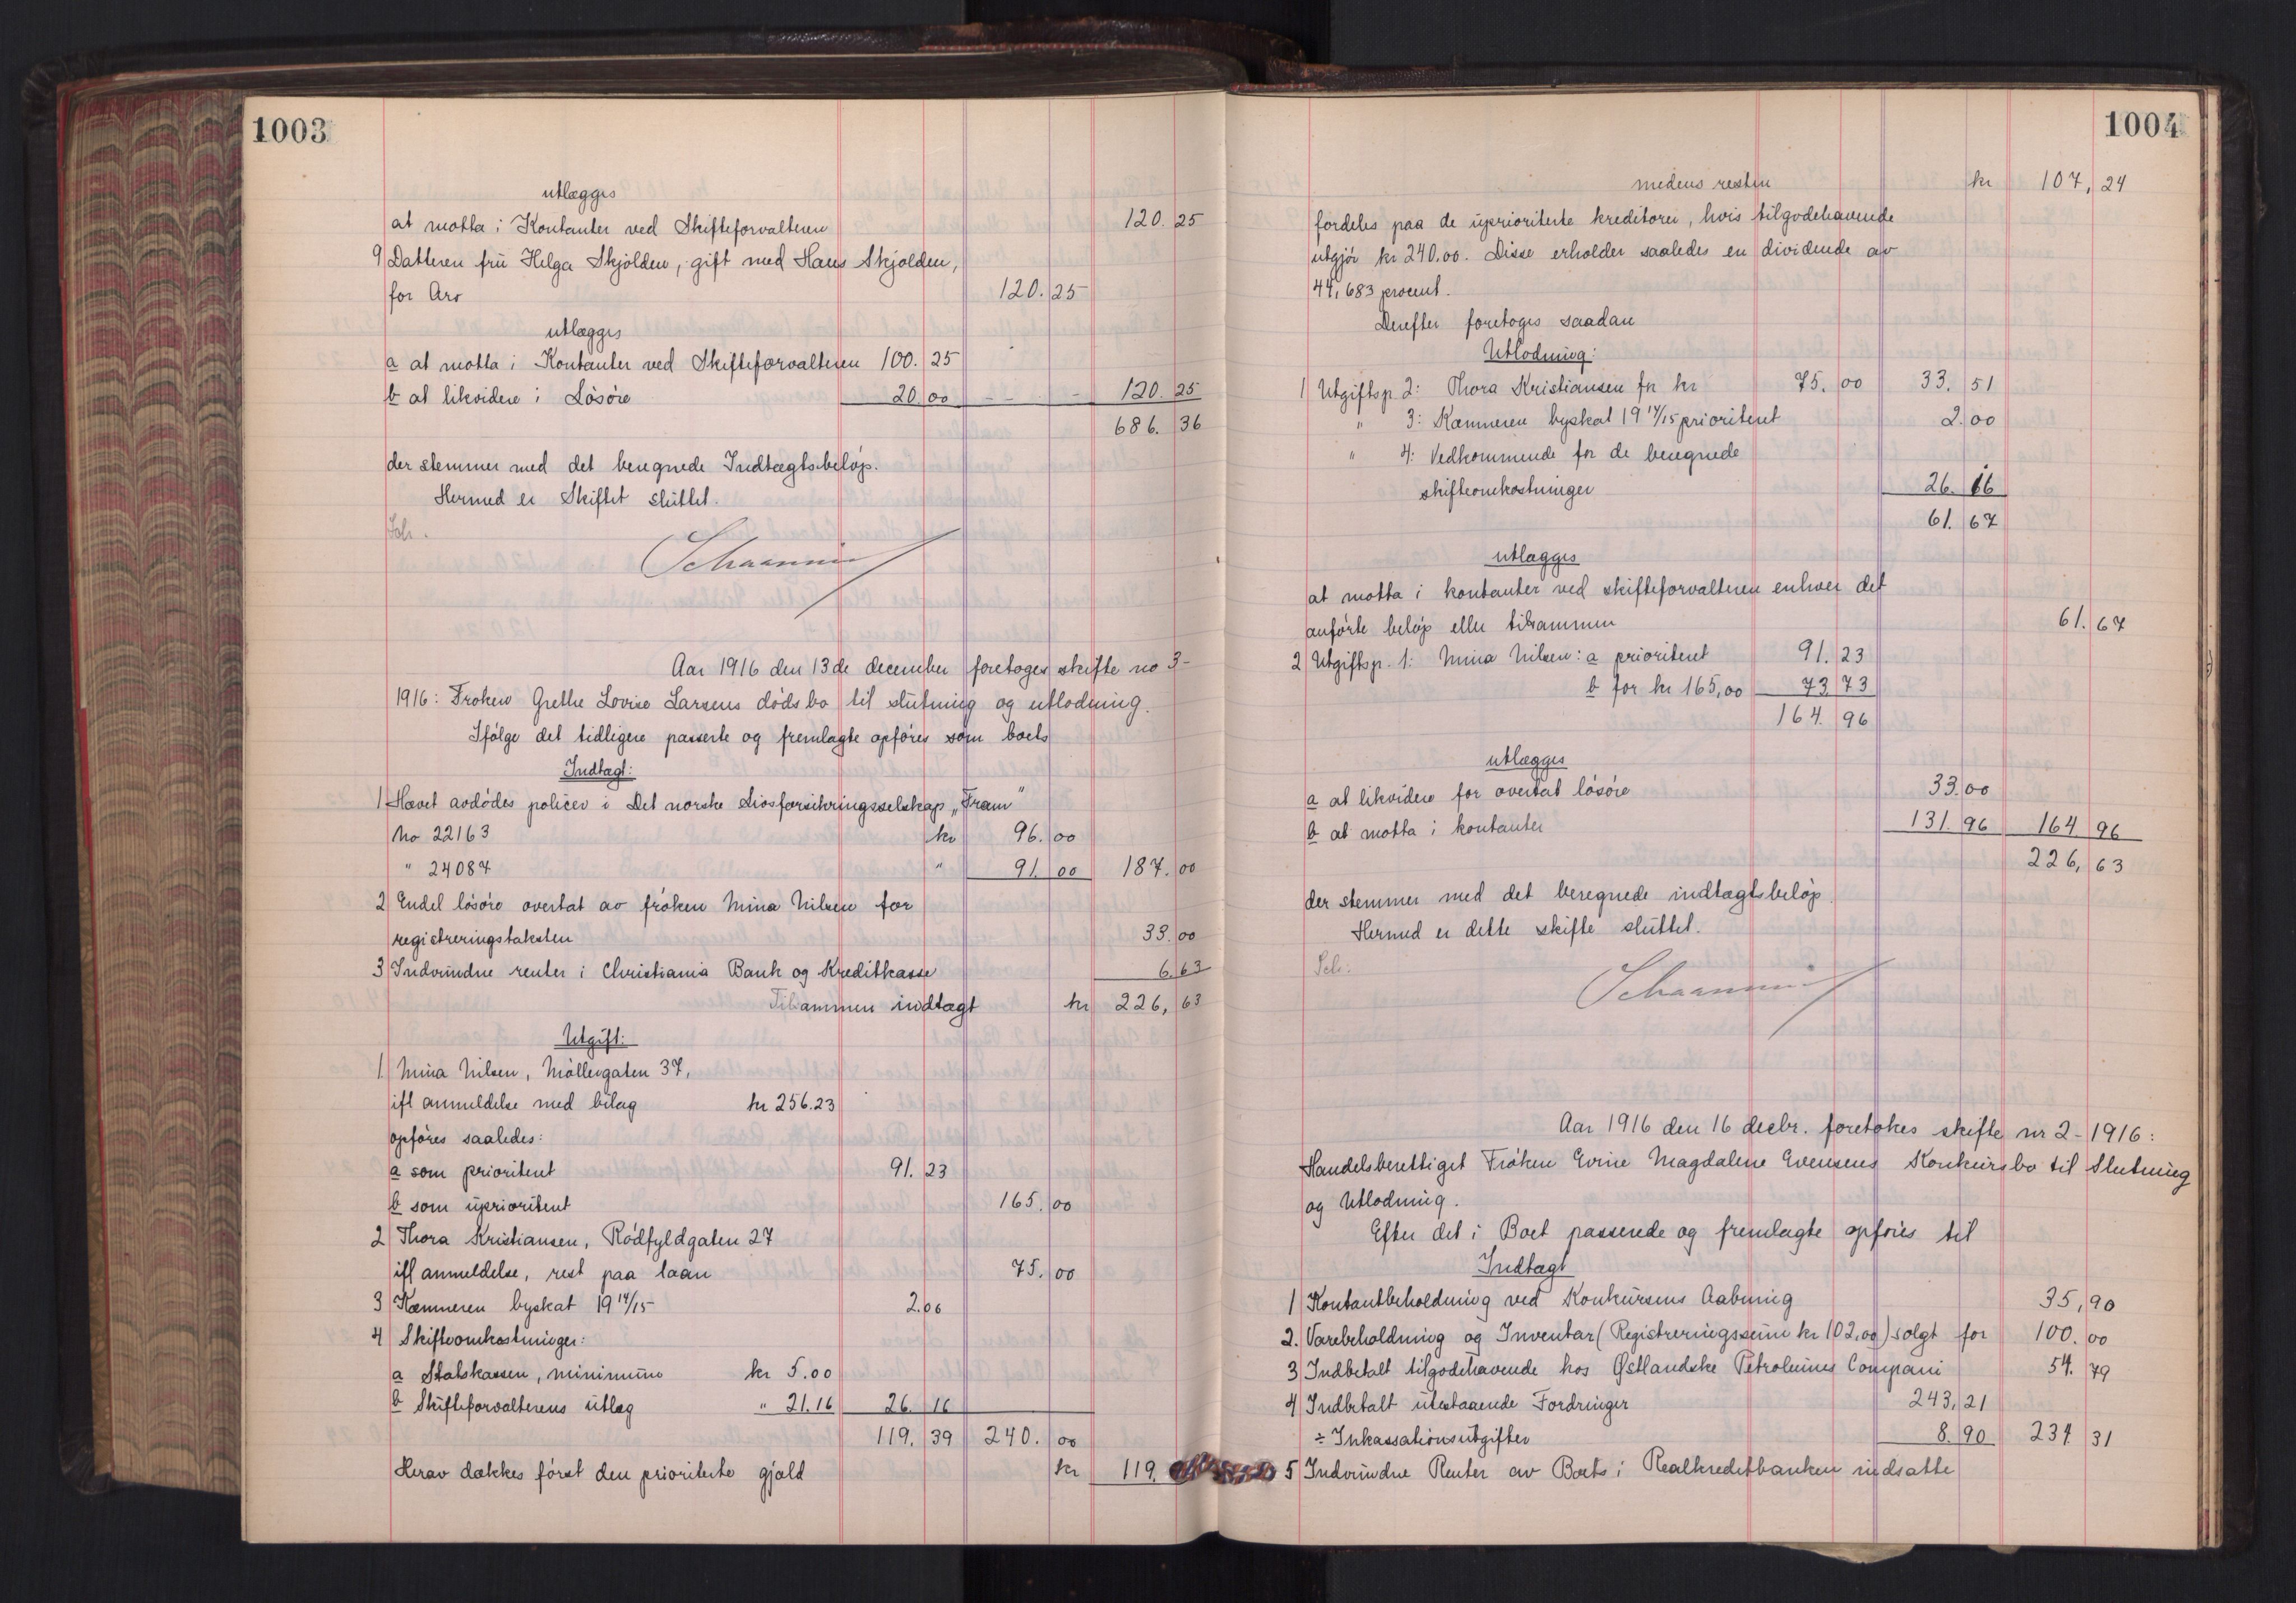 1003
utlægges
at motta i Kontanter ved Skifteforvalteren 120. 25
9 Datteren fru Helga Skjolden, gift med Hans Skjolden,
for Arv 120. 25
utlægges
a at motta i Kontanter ved Skifteforvalteren 100. 25
b at likvidere i Løsøre 20 00 120. 25
686. 36
der stemmer med det beregnede Indtægtsbeløp.
Hermed er Skiftet sluttet.
Sch.
Schaanning
Aar 1916 den 13de december foretoges skifte no 3-
1916: Frøken Grethe Lovise Larsens dødsbo til slutning og utlodning.
Ifølge det tidligere passerte og fremlagte opføres som boets
Indtægt:
1 Hævet avdødes policer i Det norske Livsforsikringsselskap „Fram"
No 22163 kr 96. 00
" 24087 " 91. 00 187. 00
2 Endel løsøre overtat av frøken Mina Nilsen for
registreringstaksten 33. 00
3 Indvundne renter i Christiania Bank og Kreditkasse 6. 63
Tilsammen indtægt kr 226, 63
Utgift:
1 Mina Nilsen, Møllergaten 37,
ifl anmeldelse med bilag kr 256.23
opføres saaledes:
a som prioritert 91. 23
b som uprioritert 165. 00
2 Thora Kristiansen, Rødfyldgaten 27
ifl anmeldelse, rest paa laan 75. 00
3 Kæmneren byskat 19 14/15 2. 00
4 Skifteomkostninger:
a Statskassen, minimum kr 5.00
b Skifteforvalterens utlæg " 21.16 26. 16
119. 39 240. 00
Herav dækkes først den prioriterte gjæld kr 119.
1004
medens resten kr 107, 24
fordeles paa de uprioriterte kreditorer, hvis tilgodehavende
utgjør kr 240.00. Disse erholder saaledes en dividende av
44,683 procent.
Derefter foretoges saadan
Utlodning:
1 Utgiftsp. 2: Thora Kristiansen for kr 75. 00 33. 51
" 3: Kæmneren byskat 19 14/15 prioritert 2. 00
" 4: Vedkommende for de beregnede
skifteomkostninger 26. 16
61. 67
utlægges
at motta i kontanter ved skifteforvalteren enhver det
anførte beløp eller tilsammen 61. 67
2 Utgiftsp. 1: Mina Nilsen: a prioritert 91. 23
b for kr 165,00 73 73
164. 96
utlægges
a at likvidere for overtat løsøre 33. 00
b at motta i kontanter 131. 96 164 96
226, 63
der stemmer med det beregnede indtægtsbeløp.
Hermed er dette skifte sluttet.
Sch:
Schaanning
Aar 1916 den 16 decbr. foretokes skifte nr 2-1916:
Handelsberettiget Frøken Evine Magdalene Evensens Konkursbo til Slutning
og Utlodning.
Efter det i Boet passerede og fremlagte opføres til
Indtægt
1 Kontantbeholdning ved Konkursens Aabning 35, 90
2. Varebeholdning og Inventar (Registreringssum kr 102,00) solgt for 100. 00
3 Indbetalt tilgodehavende hos Østlandske Petroleums Compani 54. 79
4 Indbetalt utestaaende Fordringer 243, 21
÷ Inkassationsutgifter 8. 90 234. 31
5 Indvundne Renter av Boets i Realkreditbanken indsatte